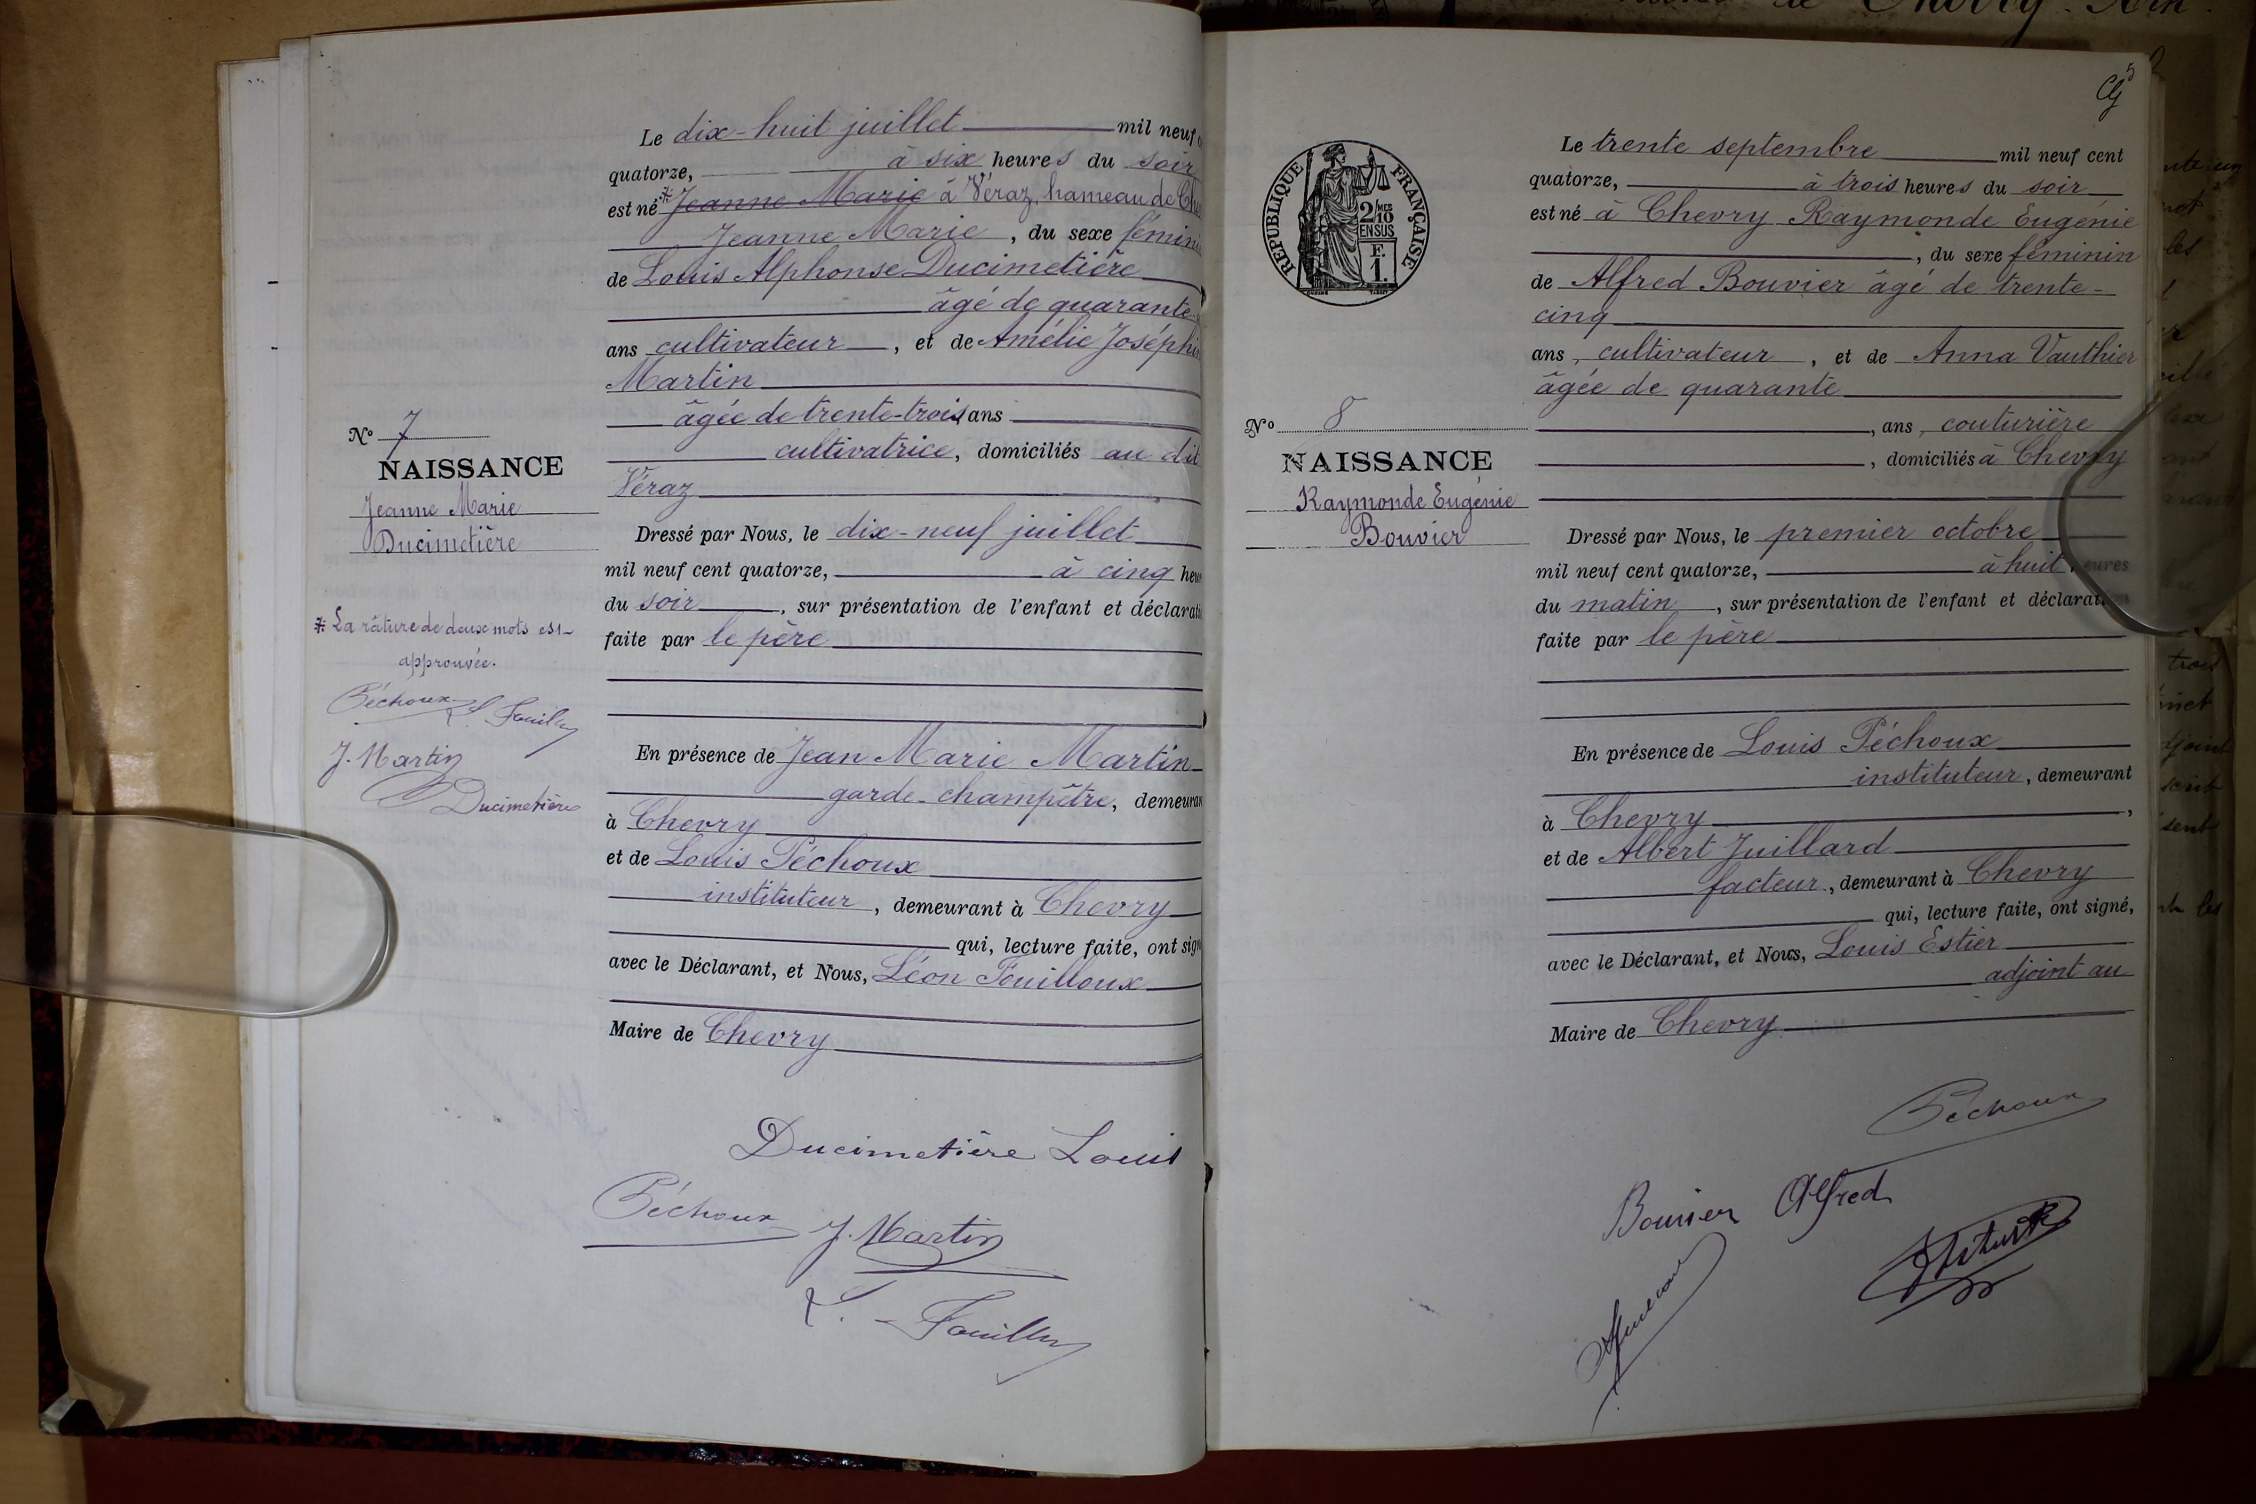 Le dix-huit juillet mil neuf
quatorze, à six heures du soir
est né * Jeanne Marie à Véraz, hameau de Che
Jeanne Marie, du sexe fémini
de Louis Alphonse Ducimetière
âgé de quarante
ans cultivateur, et de Amélie Joséphi
Martin
âgée de trente-trois ans
cultivatrice, domiciliés au dit
Véraz
N° 7
NAISSANCE
Jeanne Marie
Ducimetière
Dressé par Nous, le dix-neuf juillet
mil neuf cent quatorze, à cinq heu
du soir, sur présentation de l'enfant et déclarati
faite par le père
* La râture de deux mots est
approuvée.
Péchoux
J. Martin
Ducimetière
En présence de Jean Marie Martin
garde-champêtre, demeuran
à Chevry
et de Louis Péchoux
instituteur, demeurant à Chevry
qui, lecture faite, ont sign
avec le Déclarant, et Nous, Léon Fouilloux
Maire de Chevry
Ducimetière Louis
Péchoux J. Martin
L. Fouillx
5
RÉPUBLIQUE FRANÇAISE
2/10 MES
EN SUS
F.
1.
Le trente septembre mil neuf cent
quatorze, à trois heures du soir
est né à Chevry Raymonde Eugénie
, du sexe féminin
de Alfred Bouvier âgé de trente-
cinq
ans, cultivateur, et de Anna Vauthier
âgée de quarante
, ans, couturière
, domiciliés à Chevry
N° 8
NAISSANCE
Raymonde Eugénie
Bouvier
Dressé par Nous, le premier octobre
mil neuf cent quatorze, à huit heures
du matin, sur présentation de l'enfant et déclarat
faite par le père
En présence de Louis Péchoux
instituteur, demeurant
à Chevry,
et de Albert Juillard
facteur, demeurant à Chevry
qui, lecture faite, ont signé,
avec le Déclarant, et Nous, Louis Estier
adjoint au
Maire de Chevry
Péchoux
Bouvier Alfred